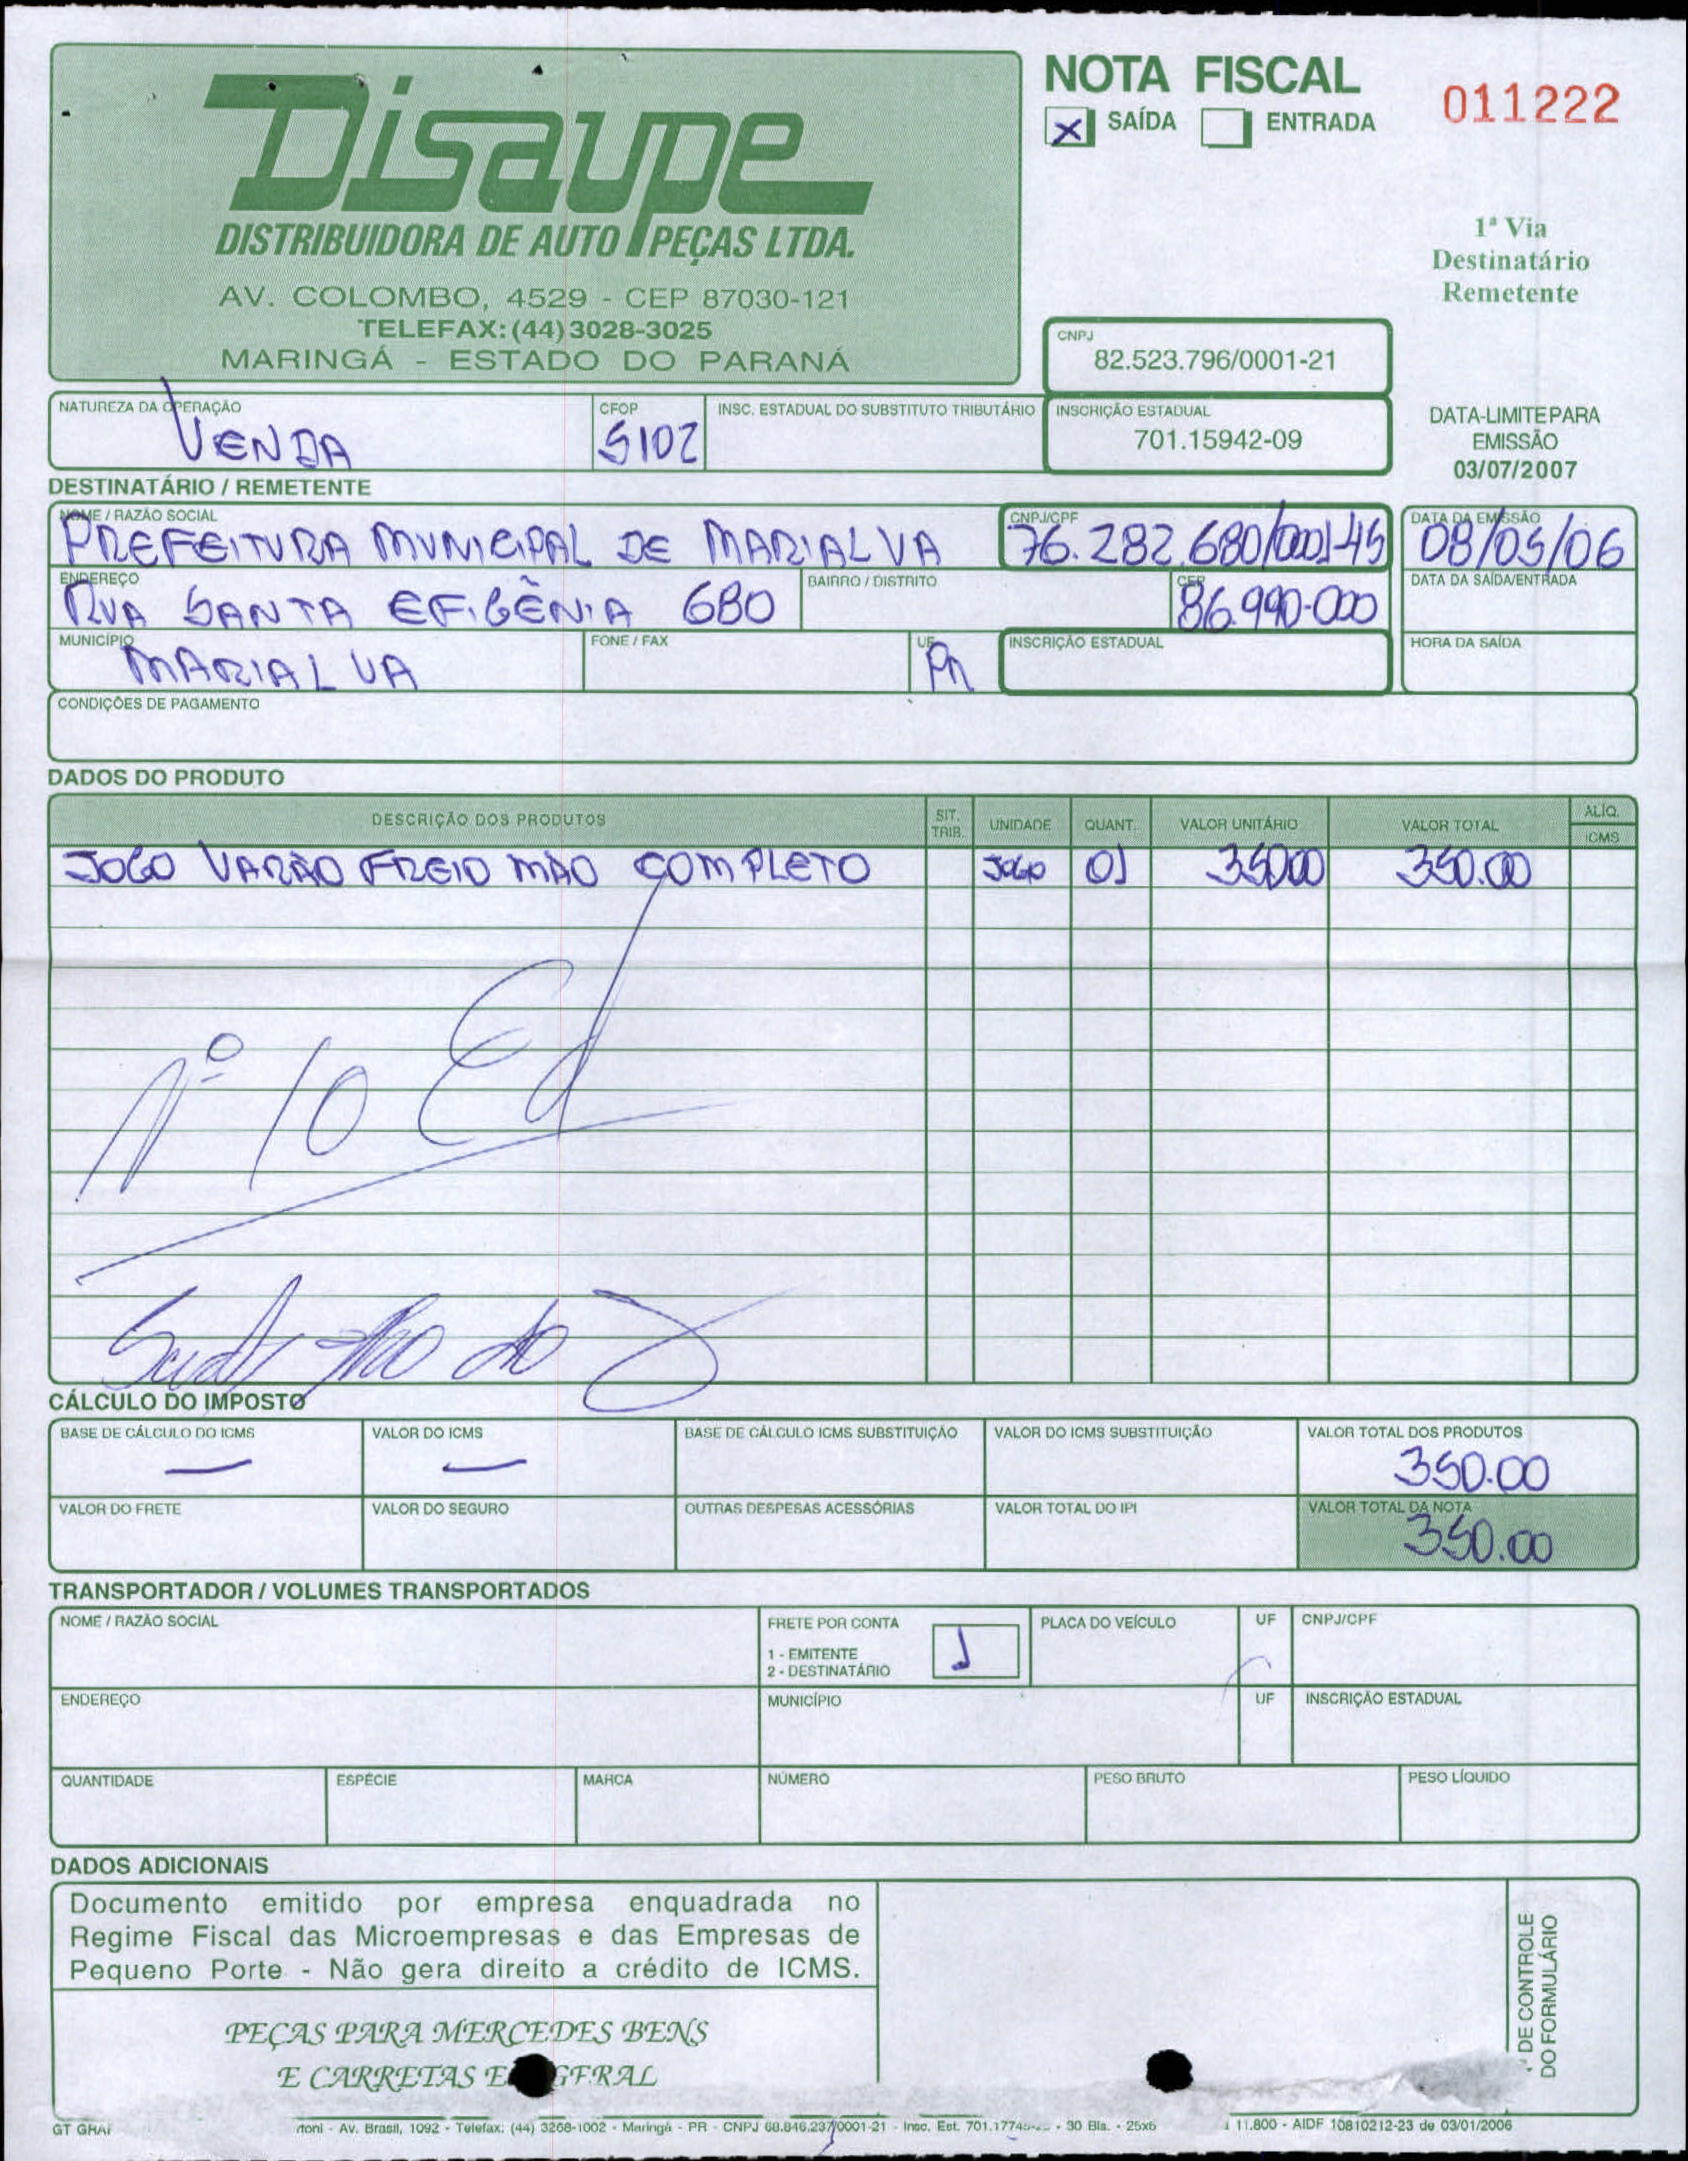 NOTA FISCAL
011222
X SAÍDA ENTRADA
Disaupe
DISTRIBUIDORA DE AUTO PEÇAS LTDA.
AV. COLOMBO, 4529 - CEP 87030-121
TELEFAX: (44) 3028-3025
MARINGÁ - ESTADO DO PARANÁ
1ª Via
Destinatário
Remetente
CNPJ
82.523.796/0001-21
NATUREZA DA OPERAÇÃO
VENDA
CFOP
5102
INSC. ESTADUAL DO SUBSTITUTO TRIBUTÁRIO
INSCRIÇÃO ESTADUAL
701.15942-09
DATA-LIMITE PARA
EMISSÃO
03/07/2007
DESTINATÁRIO / REMETENTE
NOME / RAZÃO SOCIAL
PREFEITURA MUNICIPAL DE MARIALVA
CNPJ/CPF
76.282.680/0001-45
DATA DA EMISSÃO
08/05/06
ENDEREÇO
RUA SANTA EFIGÊNIA 680
BAIRRO / DISTRITO
CEP
86.990-000
DATA DA SAÍDA/ENTRADA
MUNICÍPIO
MARIALVA
FONE / FAX
UF
PR
INSCRIÇÃO ESTADUAL
HORA DA SAÍDA
CONDIÇÕES DE PAGAMENTO
DADOS DO PRODUTO
DESCRIÇÃO DOS PRODUTOS SIT. TRIB. UNIDADE QUANT. VALOR UNITÁRIO VALOR TOTAL ALÍQ. ICMS
JOGO VARÃO FREIO MÃO COMPLETO JOGO 01 350.00 350.00
Nº 10 Ed
CÁLCULO DO IMPOSTO
BASE DE CÁLCULO DO ICMS
—
VALOR DO ICMS
—
BASE DE CÁLCULO ICMS SUBSTITUIÇÃO
VALOR DO ICMS SUBSTITUIÇÃO
VALOR TOTAL DOS PRODUTOS
350.00
VALOR DO FRETE
VALOR DO SEGURO
OUTRAS DESPESAS ACESSÓRIAS
VALOR TOTAL DO IPI
VALOR TOTAL DA NOTA
350.00
TRANSPORTADOR / VOLUMES TRANSPORTADOS
NOME / RAZÃO SOCIAL
FRETE POR CONTA
1 - EMITENTE
2 - DESTINATÁRIO
1
PLACA DO VEÍCULO
UF
CNPJ/CPF
ENDEREÇO
MUNICÍPIO
UF
INSCRIÇÃO ESTADUAL
QUANTIDADE
ESPÉCIE
MARCA
NÚMERO
PESO BRUTO
PESO LÍQUIDO
DADOS ADICIONAIS
Documento emitido por empresa enquadrada no
Regime Fiscal das Microempresas e das Empresas de
Pequeno Porte - Não gera direito a crédito de ICMS.
PEÇAS PARA MERCEDES BENS
E CARRETAS GERAL
DE CONTROLE
DO FORMULÁRIO
GT - Av. Brasil, 1092 - Telefax: (44) 3268-1002 - Maringá - PR - CNPJ 68.846.237/0001-21 - Insc. Est. - 30 Bls. - 25x6 11.800 - AIDF 10810212-23 de 03/01/2006